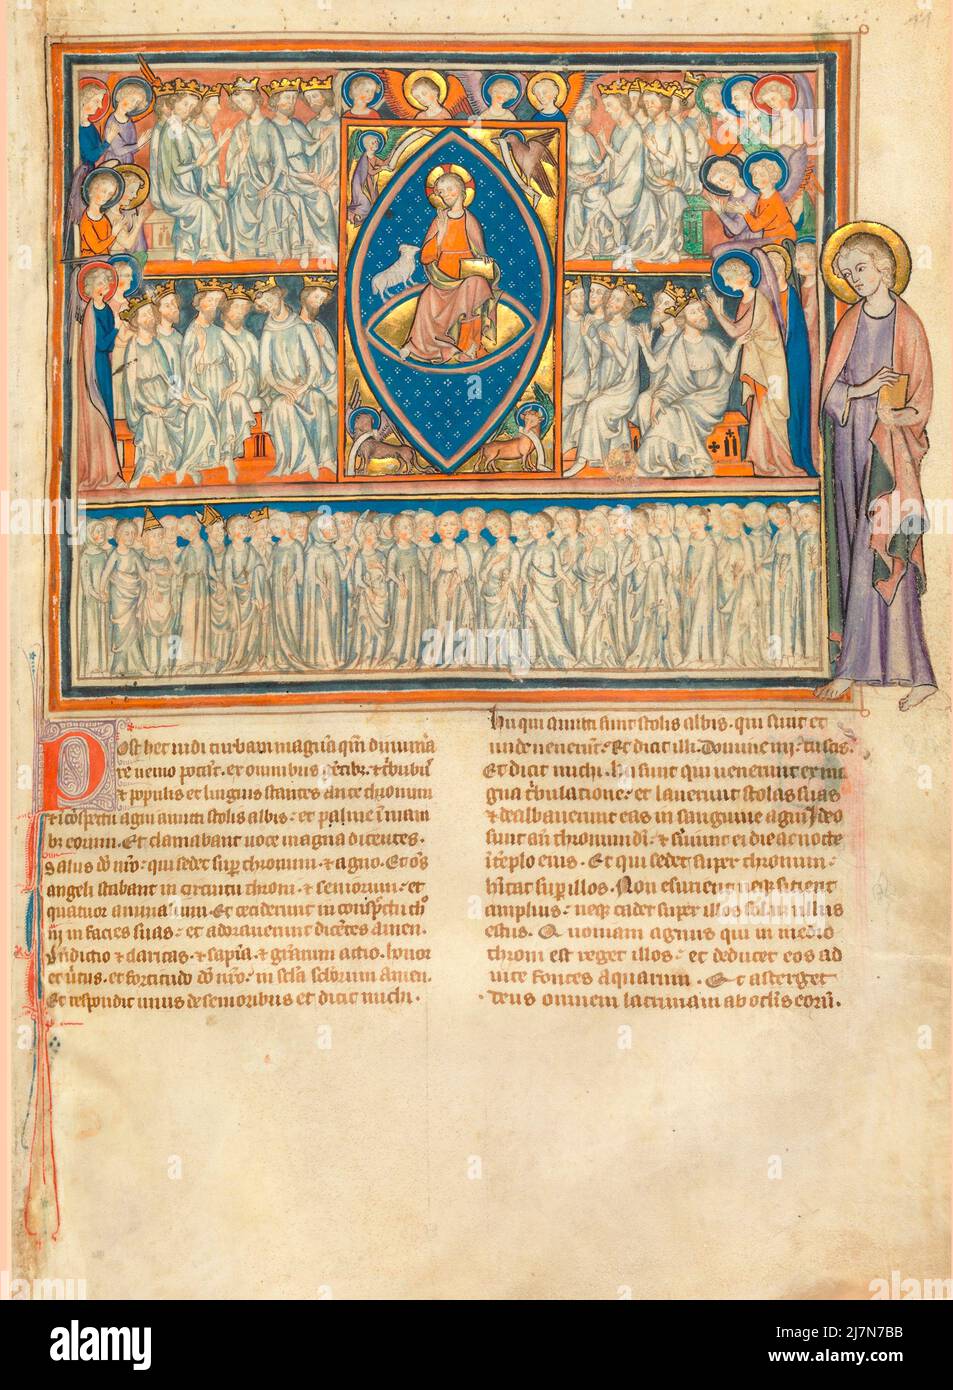 Post hec uidi turbam magnā qm̄ dinumͣa
re nemo potͣat. ex omnibus gētib; ⁊ tͥbub;
⁊ populis et linguis stantes ante thronum
⁊ ī cōspectu agni amicti stolis albis: et palme ī mani
b; eorum. Et clamabant uoce magna dicentes.
Salus dō nr̄o: qui sedet suꝑ thronum. ⁊ agno. Et oēs
angeli stabant in circuitu throni. ⁊ seniorum: et
quatuor animalium. Et ceciderunt in conspectu
in facies suas: et adorauerunt dicētes amen.
⁊ sapīa. ⁊ gratiarum actio. honor
et uirtus. et fortitudo dō nr̄o: in sc̄la sc̄lorum amen.
Et respondit unus de senioribus et dicit michi.
hii qui amicti sunt stolis albis. qui sunt et
unde uenerunt: Et dixi illi. Domine mi: tu scis.
Et dicit michi. hii sunt qui uenerunt ex ma
gna tͥbulatione: et lauerunt stolas suas
⁊ dealbauerunt eas in sanguine agni. Ideo
sunt an̄ thronum dī: ⁊ seruiunt ei die ac nocte
ī tēplo eius. Et qui sedet super thronum:
hītat suꝑ illos. Non esurient neqꝫ sitient
amplius: neqꝫ cadet super illos sol. neqꝫ ullus
estus. Quoniam agnus qui in medio
throni est reget illos: et deducet eos ad
uite fontes aquarum. Et absterget
deus omnem lacrimam ab oclīs eorū.
a
alamy
alamy
Image ID: 2J7N7BB
www.alamy.com